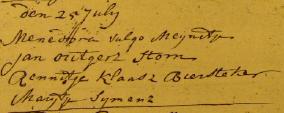 den 25 July
Menodora vulgo Meijnotje
Jan outgert Stom
Rennitje Klaasz Biersteker
Marijtje Symenz